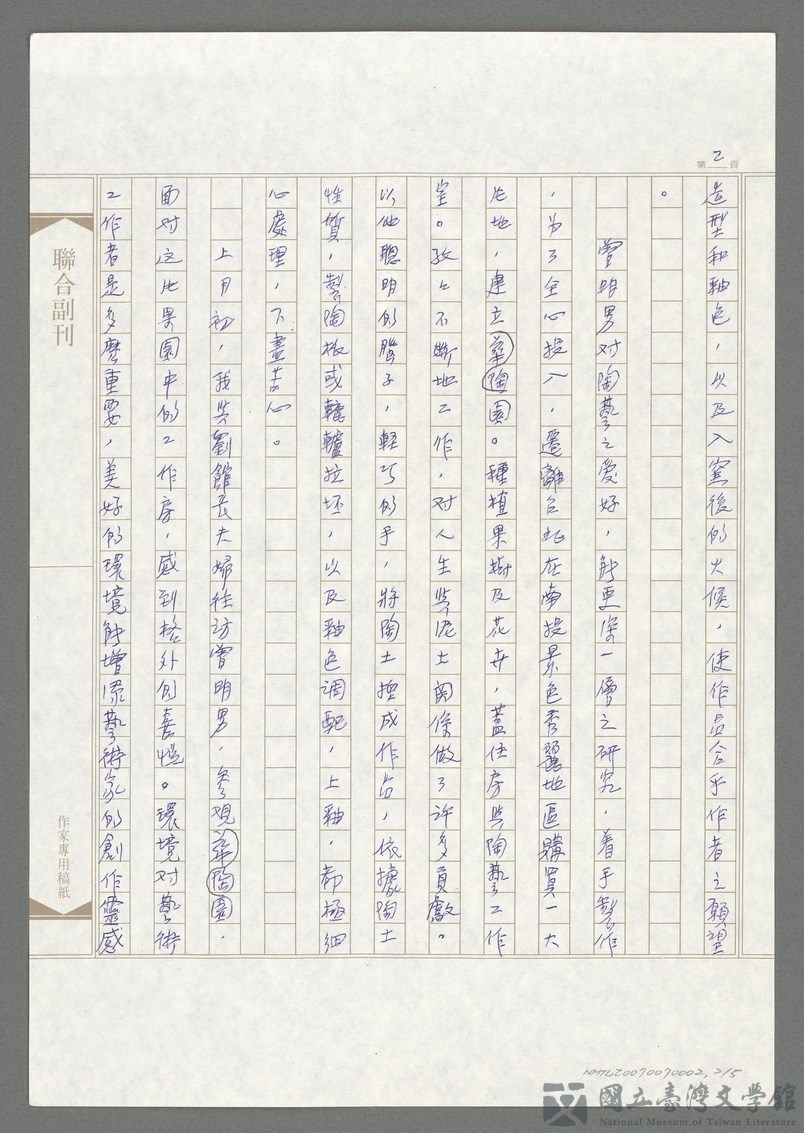 第2頁
造型和釉色，以及入窯後的火候，使作品合乎作者之願望
。
曾明男对陶藝之愛好，能更深一層之研究，着手製作
，为了全心投入，遷離台北在南投景色秀麗地區購買一大
片地，建立華陶園。種植果樹及花卉，蓋住房與陶藝工作
室。孜々不断地工作，对人生與泥土関係做了許多貢獻。
以他聰明的腦子，軽巧的手，將陶土揑成作品，依據陶土
性質，製陶板或轆轤拉坯，以及釉色調配，上釉，都極細
心處理，下盡苦心。
上月初，我與劉館長夫婦往訪曾明男，參观華陶園，
面对这片果園中的工作房，感到格外的喜悅。環境对藝術
工作者是多麼重要，美好的環境能增深藝術家的創作靈感
聯合副刊
作家專用稿紙
NMTL20070070002, 2/5
國立臺灣文學館
National Museum of Taiwan Literature